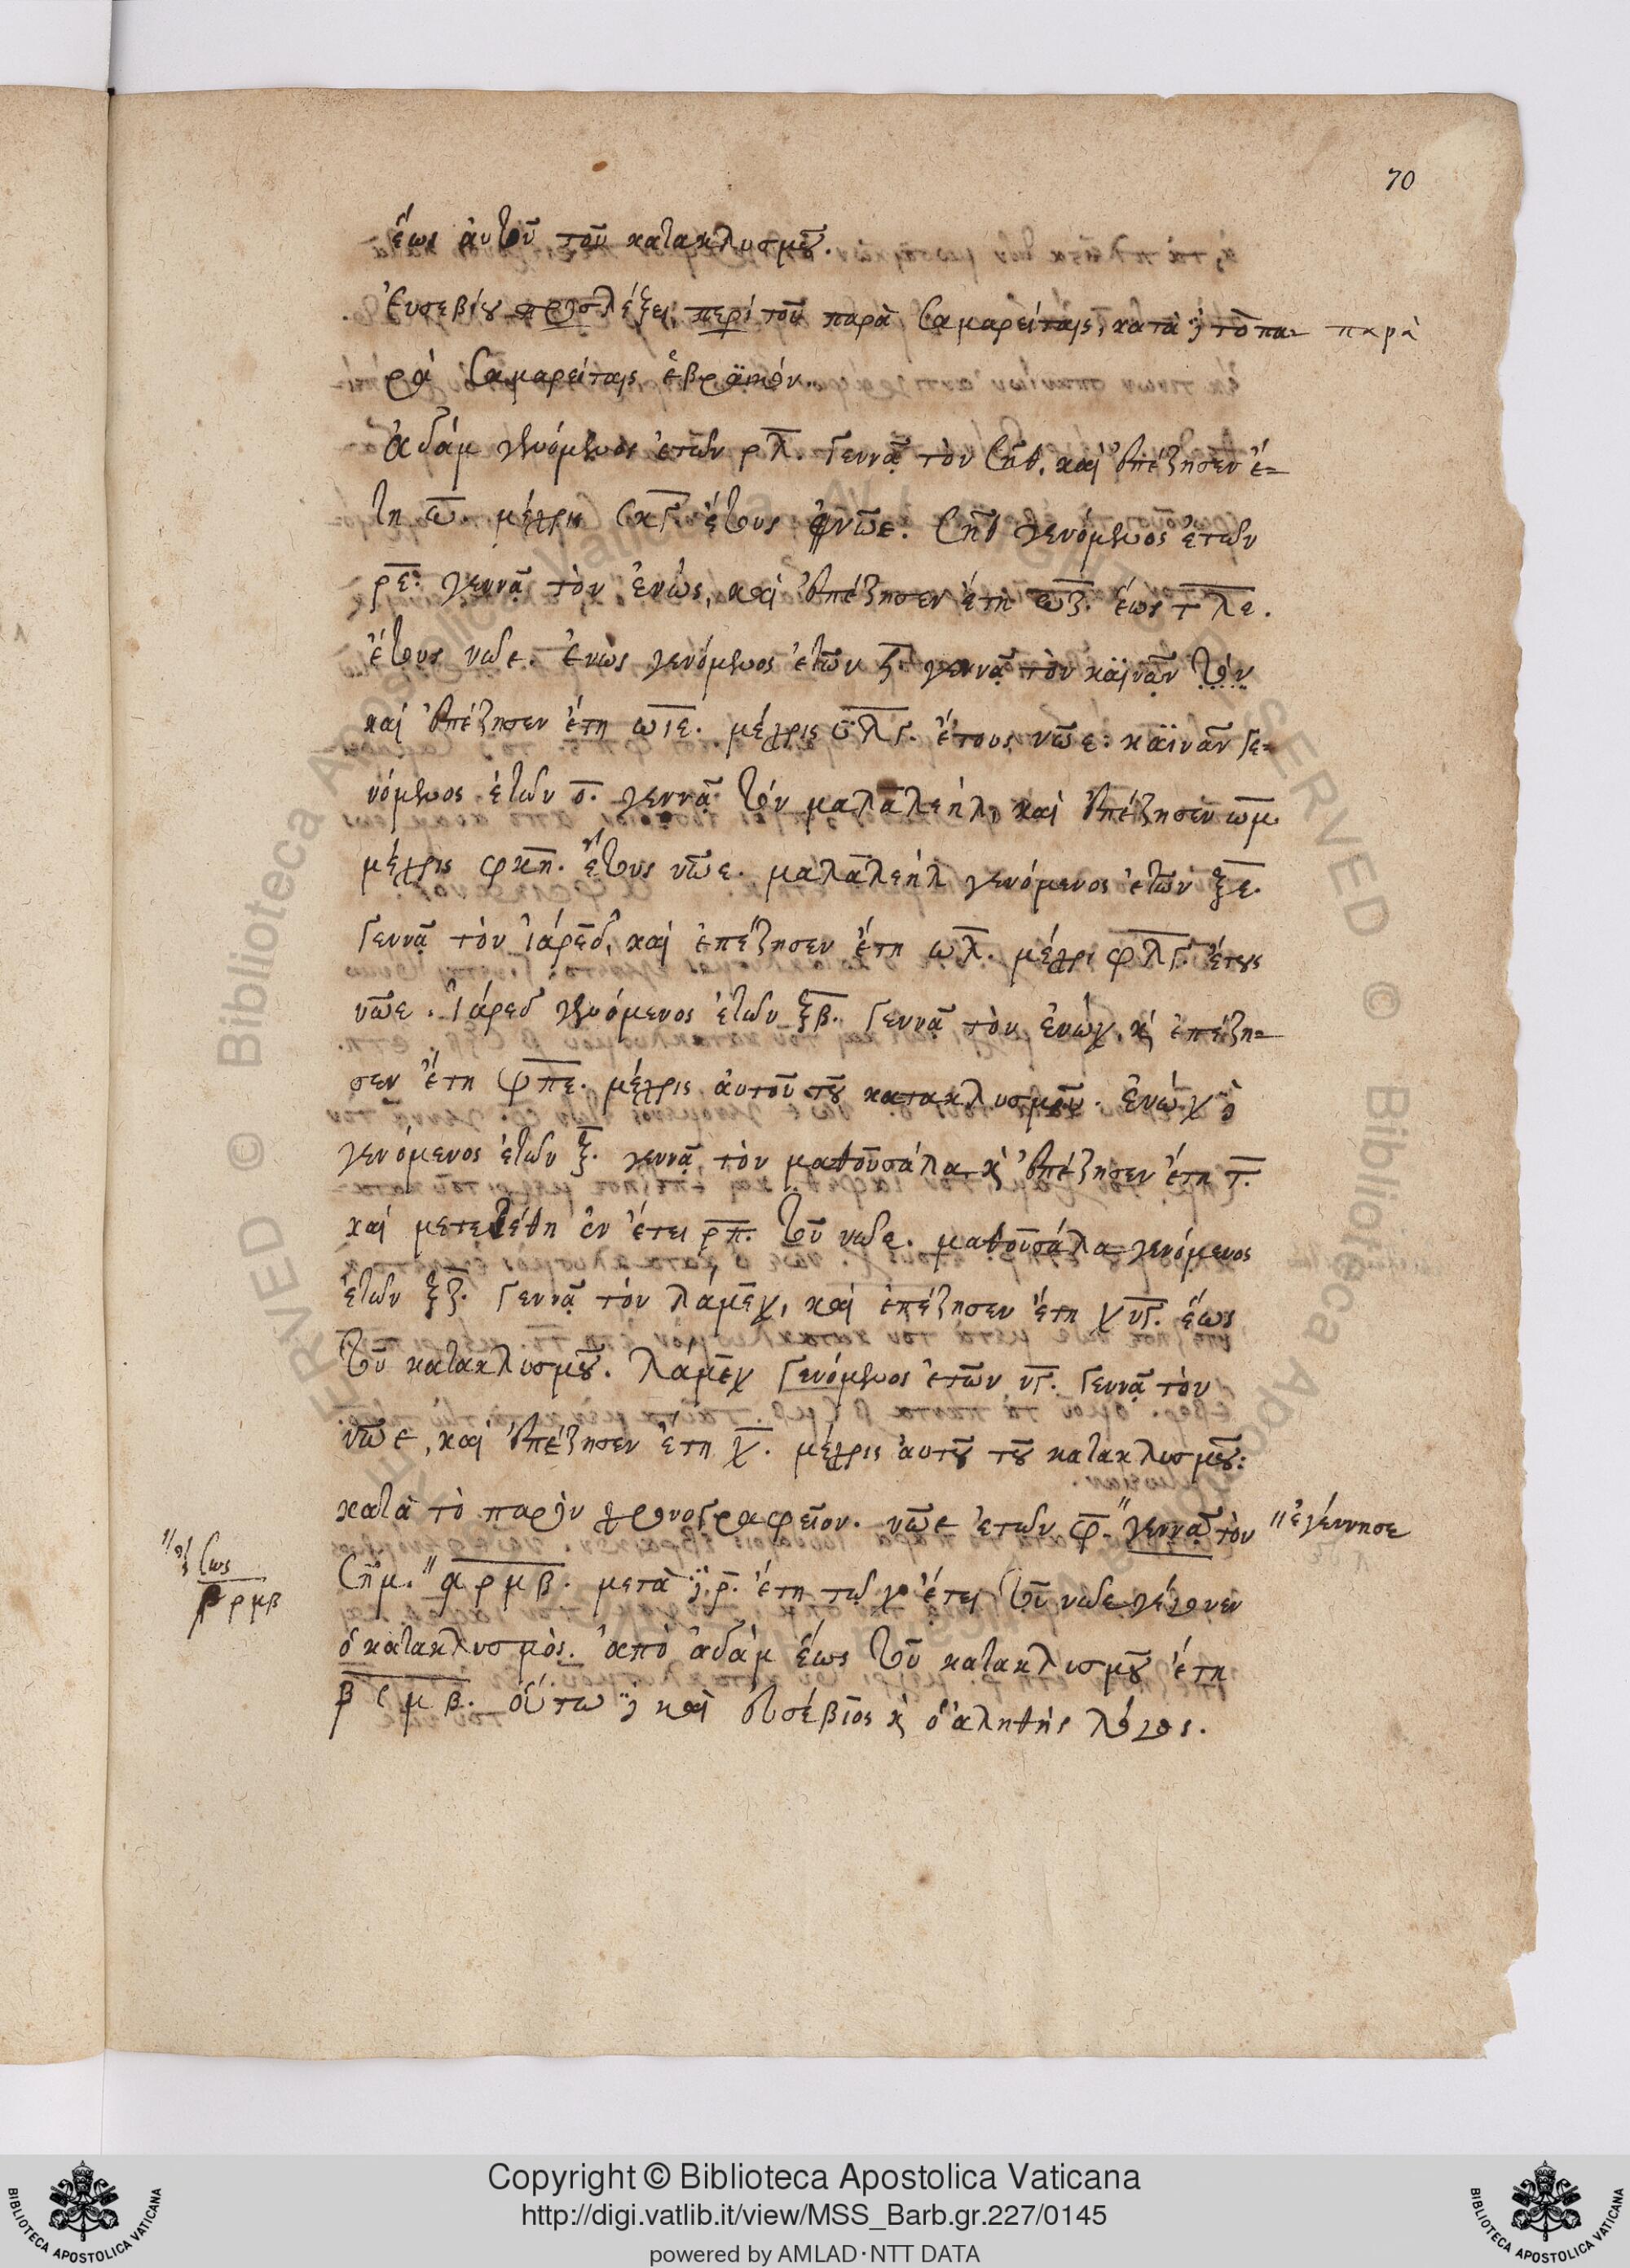 70
ἕως αὐτοῦ τοῦ κατακλυσμοῦ.
Εὐσεβίου περὶ τοῦ παρὰ Σαμαρείταις, κατὰ δὲ τὸ πα= παρὰ
ρὰ Σαμαρείταις ἑβραϊκόν.
Ἀδὰμ γενόμενος ἐτῶν ρλ. γεννᾷ τὸν Σήθ, καὶ ἐπέζησεν ἔ=
τη ω. μέχρι σκγ ἔτους νῶε. Σὴθ γενόμενος ἐτῶν
ρε. γεννᾷ τὸν ἐνώς, καὶ ἐπέζησεν ἔτη ωζ. ἕως τλε.
ἔτους νῶε. ἐνὼς γενόμενος ἐτῶν ϟ γεννᾷ τὸν καϊνᾶν τὸν
καὶ ἐπέζησεν ἔτη ωιε. μέχρις υλγ. ἔτους νῶε. καϊνᾶν γε=
νόμενος ἐτῶν ο. γεννᾷ τὸν μαλαλεὴλ, καὶ ἐπέζησεν ωμ
μέχρις φκη. ἔτους νῶε. μαλαλεὴλ γενόμενος ἐτῶν ξε.
γεννᾷ τὸν ἰάρεδ, καὶ ἐπέζησεν ἔτη ωλ. μέχρι φλγ. ἔτους
νῶε. ἰάρεδ γενόμενος ἐτῶν ξβ. γεννᾷ τὸν ἐνώχ, κ ἐπέζη=
σεν ἔτη ψπε. μέχρις αὐτοῦ τοῦ κατακλυσμοῦ. ἐνὼχ ὁ
γενόμενος ἐτῶν ξ. γεννᾷ τὸν μαθουσάλα κ ἐπέζησεν ἔτη τ.
καὶ μετετέθη ἐν ἔτει ρπ. τοῦ νῶε. μαθουσάλα γενόμενος
ἐτῶν ξζ. γεννᾷ τὸν λάμεχ, καὶ ἐπέζησεν ἔτη χνγ. ἕως
τοῦ κατακλυσμοῦ. λάμεχ γενόμενος ἐτῶν νγ. γεννᾷ τὸν
νῶε, καὶ ἐπέζησεν ἔτη χ. μέχρις αὐτοῦ τοῦ κατακλυσμοῦ:
κατὰ τὸ παρὸν χρονογραφεῖον. νῶε ἐτῶν φ. " γεννᾷ τὸν " ἐγέννησε
Σήμ. " ͵αρμβ. μετὰ δὲ ρ. ἔτη τῷ χ ἔτει τοῦ νῶε γέγονεν
ρμβ
ὁ κατακλυσμός. ἀπὸ ἀδὰμ ἕως τοῦ κατακλυσμοῦ ἔτη
͵βσμβ. οὕτω δὲ καὶ εὐσέβιος κ ὁ ἀληθὴς λόγος.
Copyright © Biblioteca Apostolica Vaticana
http://digi.vatlib.it/view/MSS_Barb.gr.227/0145
powered by AMLAD·NTT DATA
BIBLIOTECA APOSTOLICA VATICANA
BIBLIOTECA APOSTOLICA VATICANA